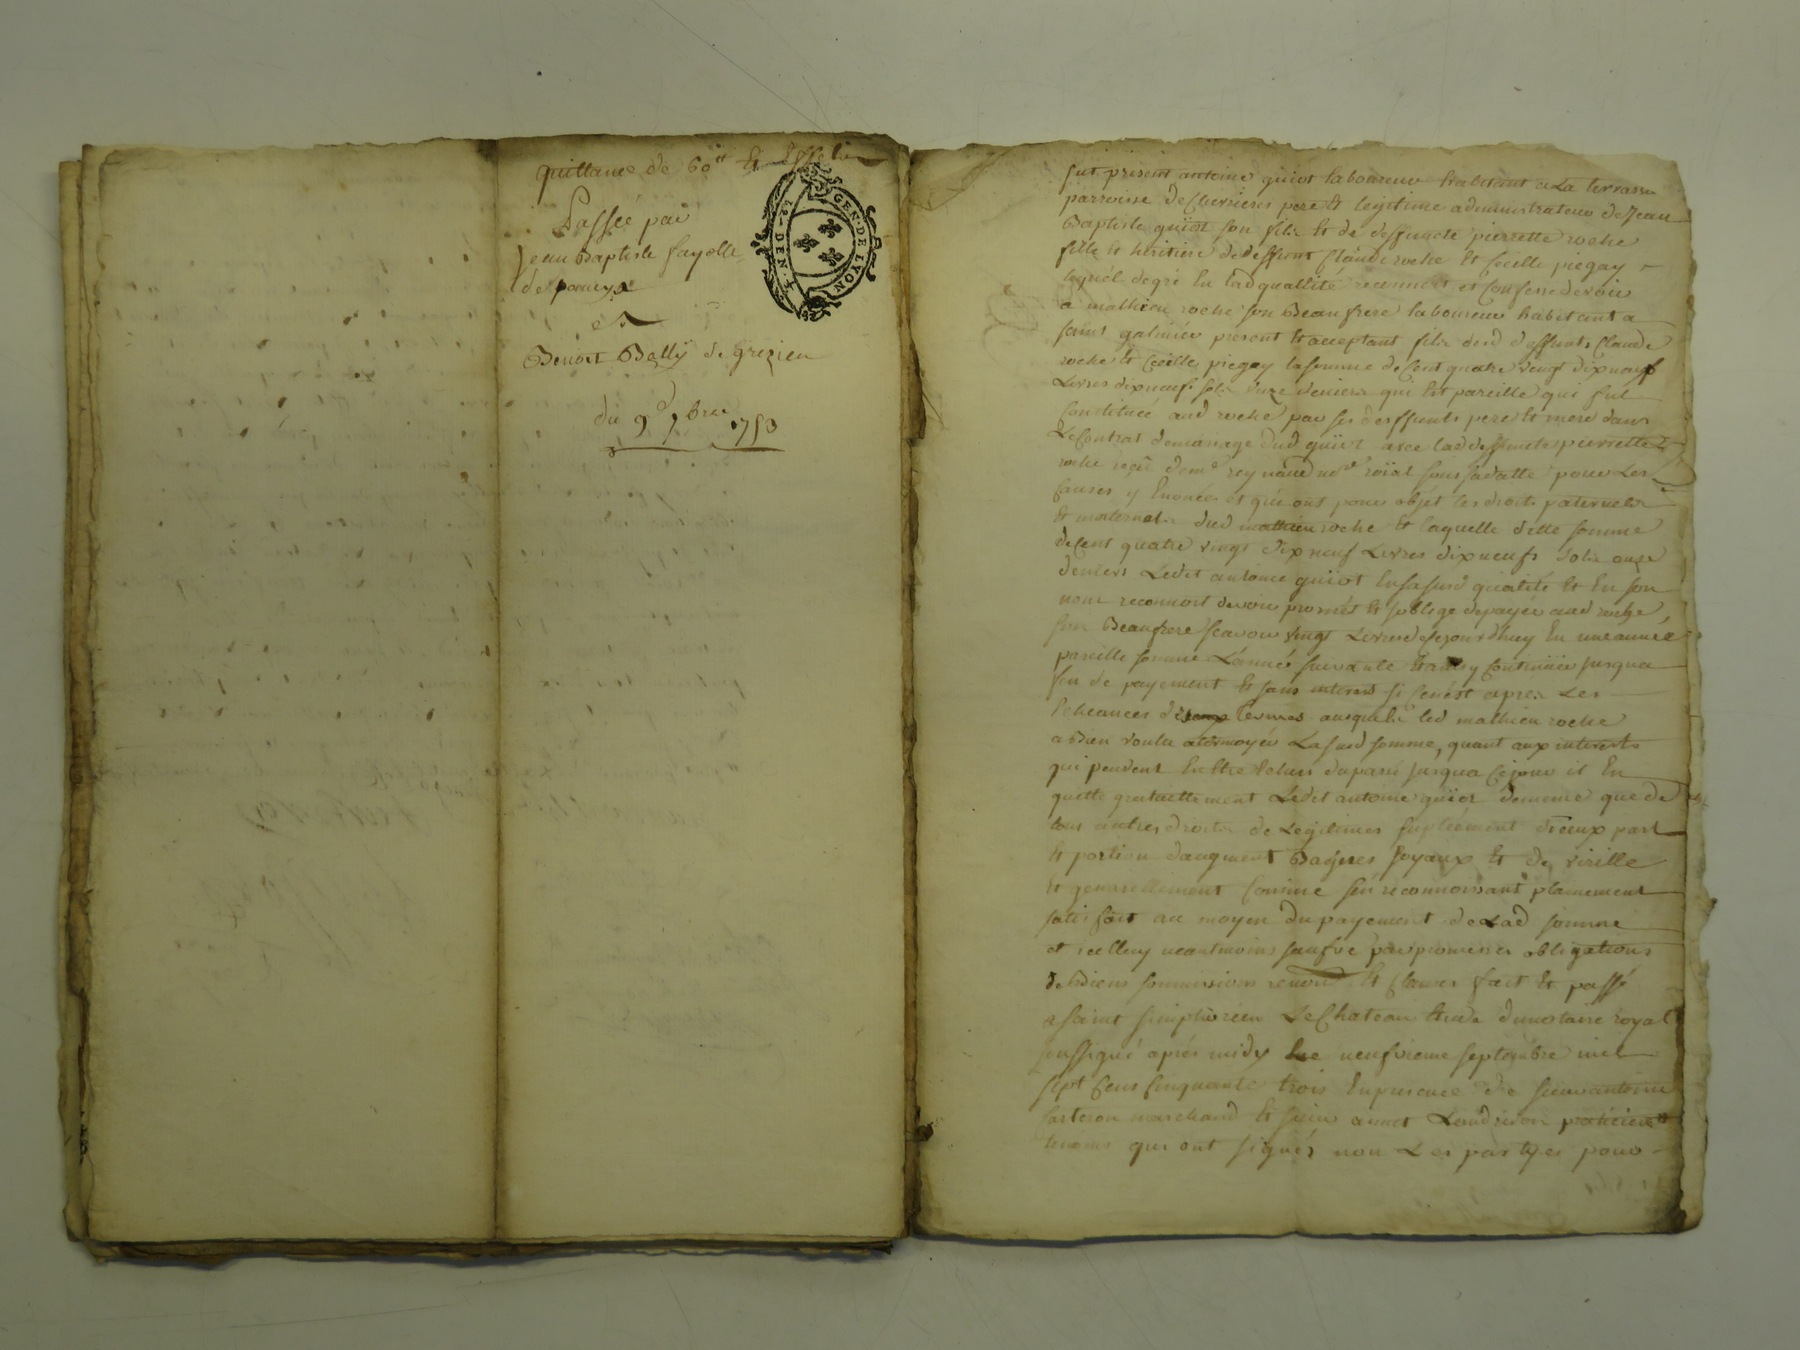 quittance de 60ᵗᵗ Et
Passée par
Jean Baptiste fayolle
de pomeys
et
Benoit Bally de grezieu
du 9ᵉ 7bre 1753
GEN. DE LYON
fut présent antoine guiot laboureur habitant a La terrasse
parroisse de Chevrieres pere Et legitime administrateur de Jean
Baptiste guiot son fils Et de deffuncte pierrette roche
fille Et heritiere de deffunt Claude roche Et Cecille piegay
lequel de gré En lad quallité reconnoit et Confesse devoir
a mathieu roche son Beaufrere laboureur habitant a
saint galmier present Et acceptant fils desd deffunts Claude
roche Et Cecille piegay la somme de Cent quatre vingt dix neuf
Livres dix neuf sols onze deniers qui Est pareille qui fut
Constituée aud roche par ses deffunts pere Et mere dans
Le Contrat de mariage dud guiot avec lad deffuncte pierrette
roche reçû de mᵉ reynaud noʳᵉ roïal sous sa datte pour Les
Causes y Enoncées et qui ont pour objet les droits paternels
Et maternels dud mathieu roche Et laquelle ditte somme
de Cent quatre vingt dix neuf Livres dix neufs sols onze
deniers Ledit antoine guiot En sa susd qualité Et En son
nom reconnoit devoir promet Et soblige de payer aud roche
son Beaufrere scavoir vingt Livres de ce jourdhuy En une année
pareille somme L'année suivante Et ainsy Continüer jusqua
fin de payement Et sans interest si ce n'est apres Les
Echeances des termes auxquels led mathieu roche
a Bien voulu atermoyer La susd somme, quant aux interests
qui peuvent Estre Echus du passé jusqua ce jour il En
quitte gratuittement Ledit antoine guiot de meme que de
tous autres droits de Legitimes supleement d'iceux part
Et portion d'augment Bagues Joyaux Et de virille
Et generallement Comme s'en reconnoissant plainement
satisfait au moyen du payement de Lad somme
et icelluy neantmoins sauf par promesses obligations
de Biens soumissions renon Et Clauses fait Et passé
a saint simphorien Le Chateau Etude du notaire royal
soussigné après midy Le neufvieme septembre mil
sept Cens Cinquante trois En presence de sieur antoine
marchand Et sieur annet praticien
temoins qui ont signés non Les partyes pour